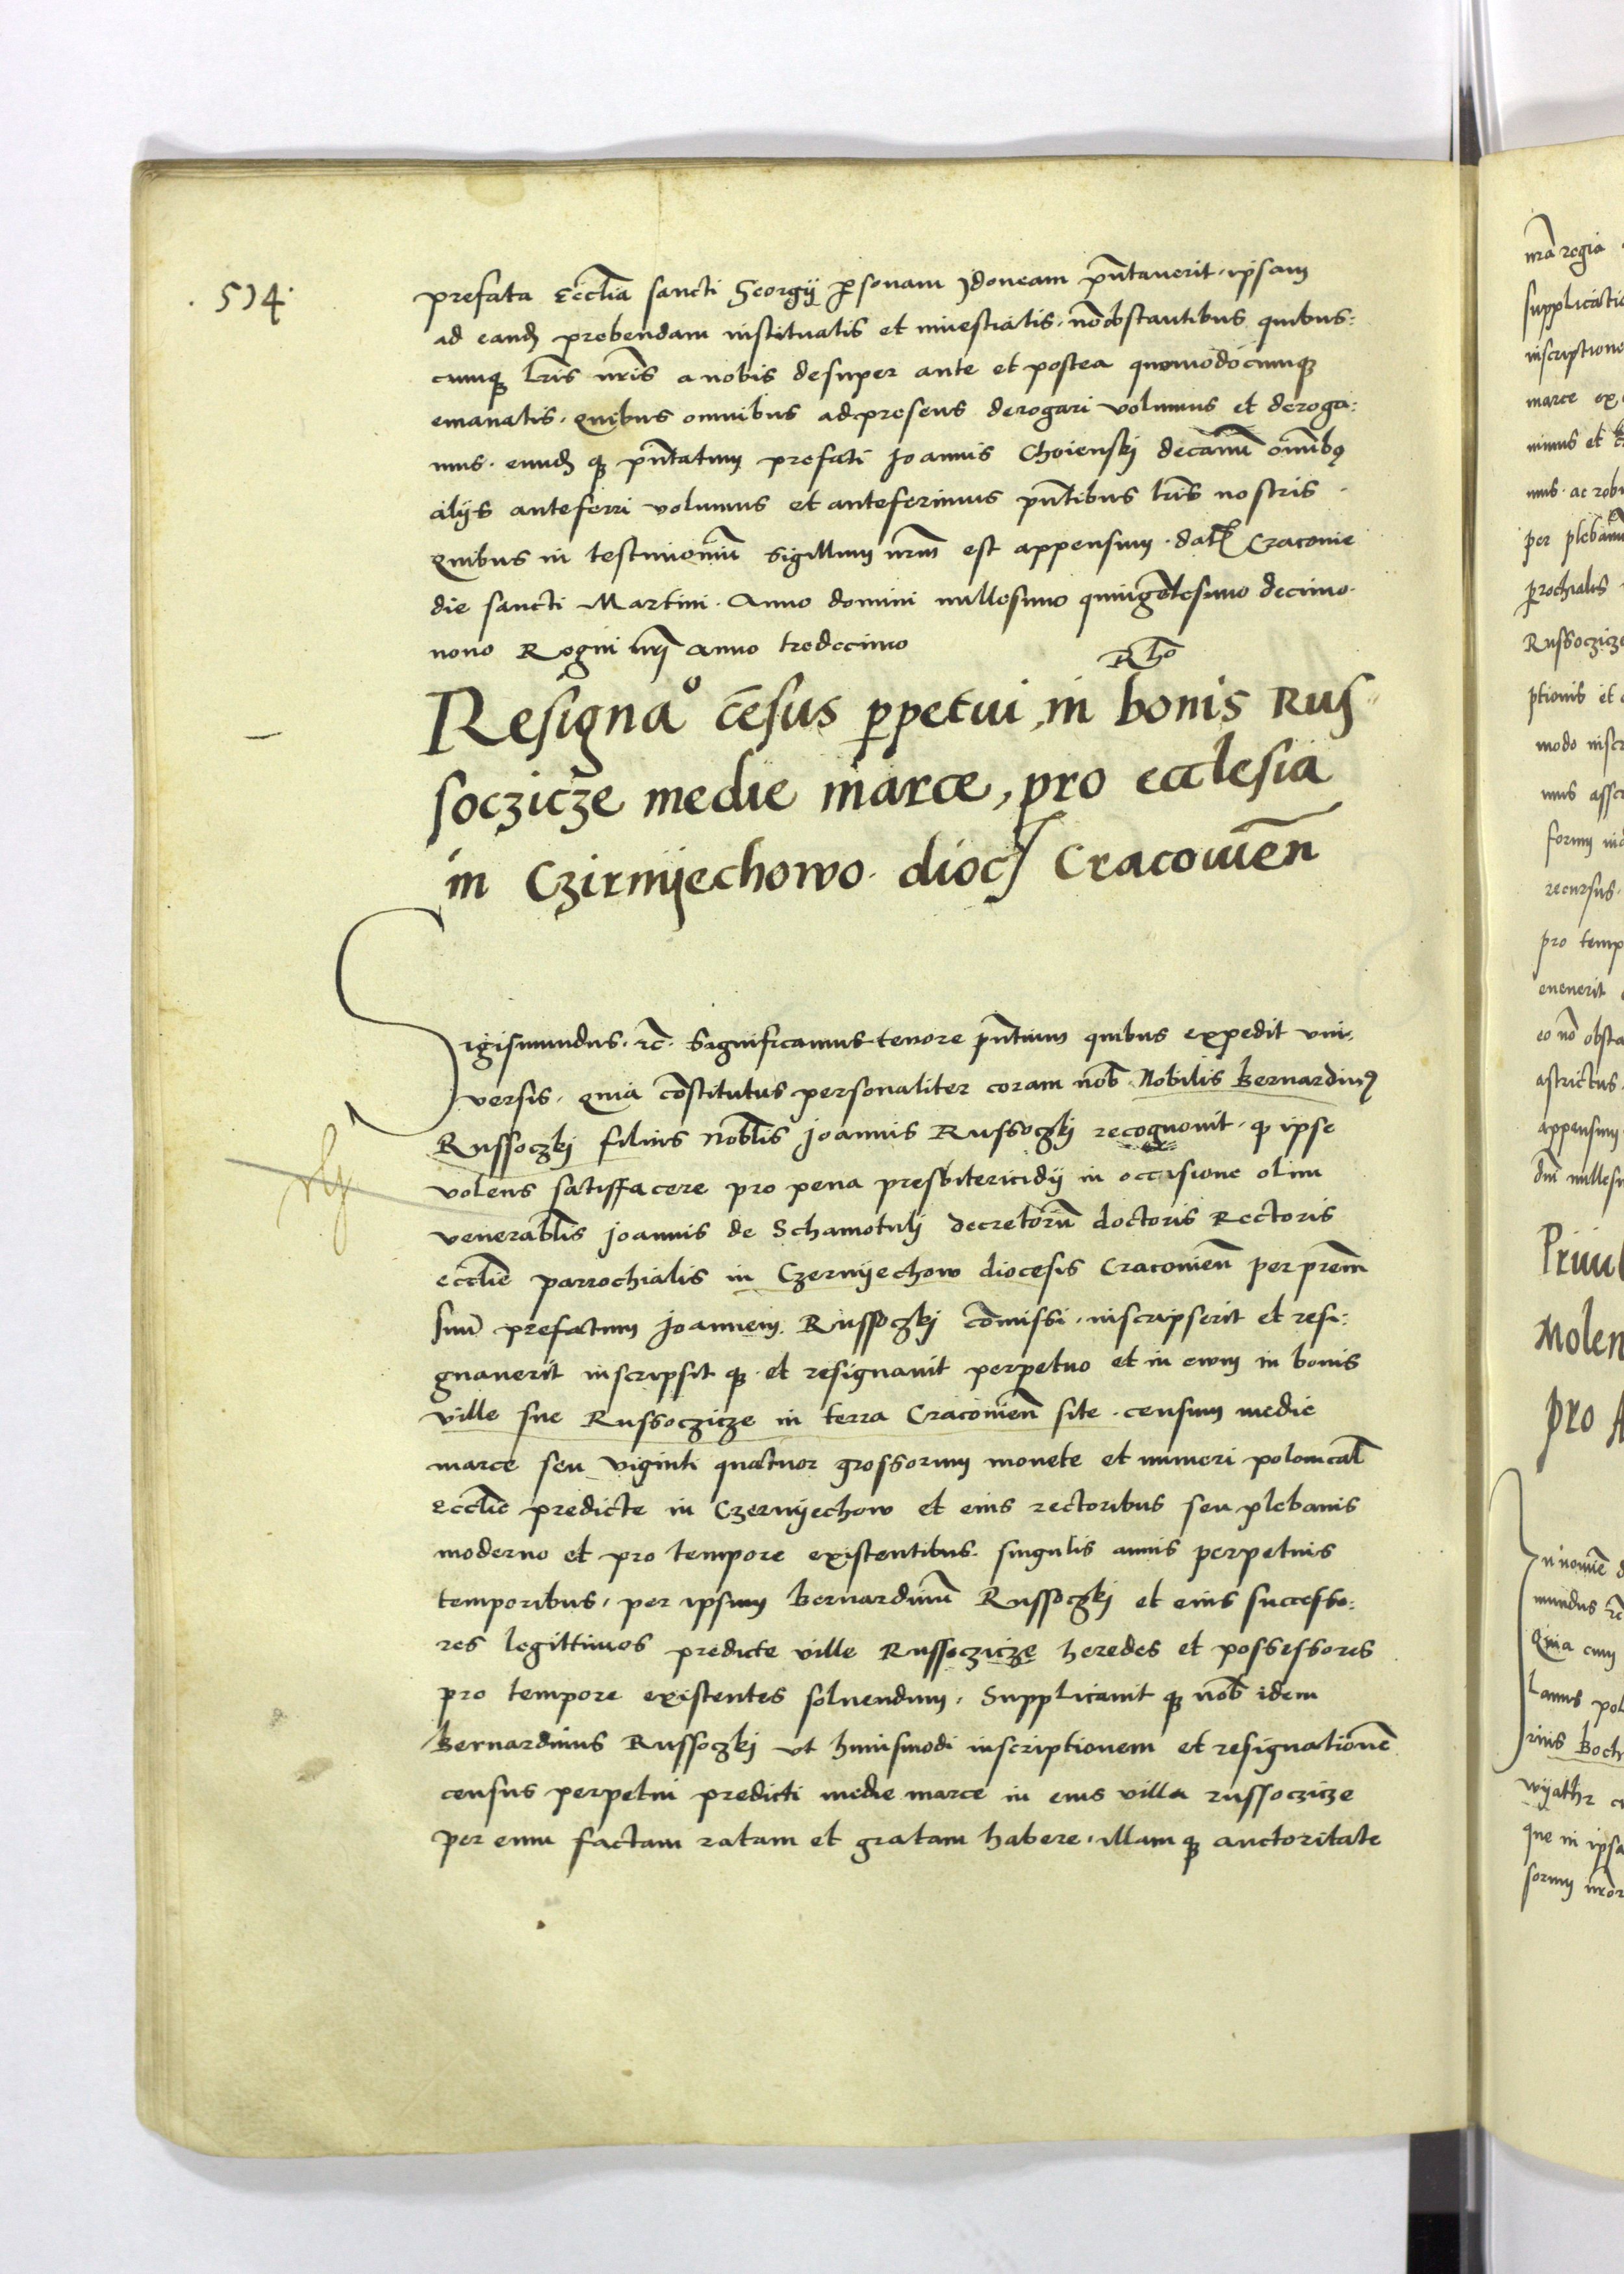 . 514 .
prefata Eccl̄ia sancti Georgij ꝑsonam Jdoneam pn̄tauerit · ipsam
ad eand̄ prebendam instituatis et inuestiatis · nō obstantibus quibus:
cumqꝫ lr̄is nr̄is a nobis desuper ante et postea quomodocumqꝫ
emanatis · quibus omnibus ad presens derogari volumus et deroga:
mus · eund̄ qꝫ pn̄tatum prefati Joannis Choienskj decanū om̄ibꝯ
alijs anteferri volumus et anteferimus pn̄tibus lr̄is nostris ·
quibus in testimoniū sigillum nrm̄ est appensum · datꝭ Cracouie
die sancti Martini · Anno domini millesimo quingētesimo decimo
nono Regni nr̄j anno tredecimo
Rᵗᵒ
Resignaᵒ cēsus ꝑpetui, in bonis Rus
soczicze medie marce, pro ecclesia
in Czirnijechowo · diocꝭ Cracouien̄
Sigismundus · rc̄ · Significamus tenore pn̄tium quibus expedit vni,
versis · quia cōstitutus personaliter coram nob̄ Nobilis Bernardinꝯ
Russoczkj filius nobl̄is Joannis Russoczkj recognouit · ꝙ ipse
volens satisffacere pro pena presbitericidij in occisione olim
venerabl̄is Joannis de Schamotulj decretorū doctoris Rectoris
eccl̄ie parrochialis in Czernijechow diocesis Cracouien̄ per prēm
suū prefatum Joannem Russoczkj cōmissi · inscripserit et resi:
gnauerit inscripsit qꝫ · et resignauit perpetuo et in ewm in bonis
ville sue Russoczicze in terra Cracouien̄ site · censum medie
marce seu viginti quatuor grossorum monete et numeri polonical̄
Eccl̄ie predicte in Czernijechow et eius rectoribus seu plebanis
moderno et pro tempore existentibus · singulis annis perpetuis
temporibus · per ipsum Bernardinū Russoczkj et eius successo:
res legittimos predicte ville Russoczicze heredes et possessores
pro tempore existentes soluendum · Supplicauit qꝫ nob̄ idem
Bernardinus Russoczkj vt huiusmodi inscriptionem et resignationē
census perpetui predicti medie marce in eius villa russoczicze
per eum factam ratam et gratam habere · illam qꝫ auctoritate
nr̄a regia
marce ex
per plebanū
Russoczicze
modo inscr
recursus ·
pro temp
euenerit
eo nō obsta
astrictus ·
appensum
Priuil
Molen
pro
mundus rc̄
Quia cum
wijathr
que in ipsa